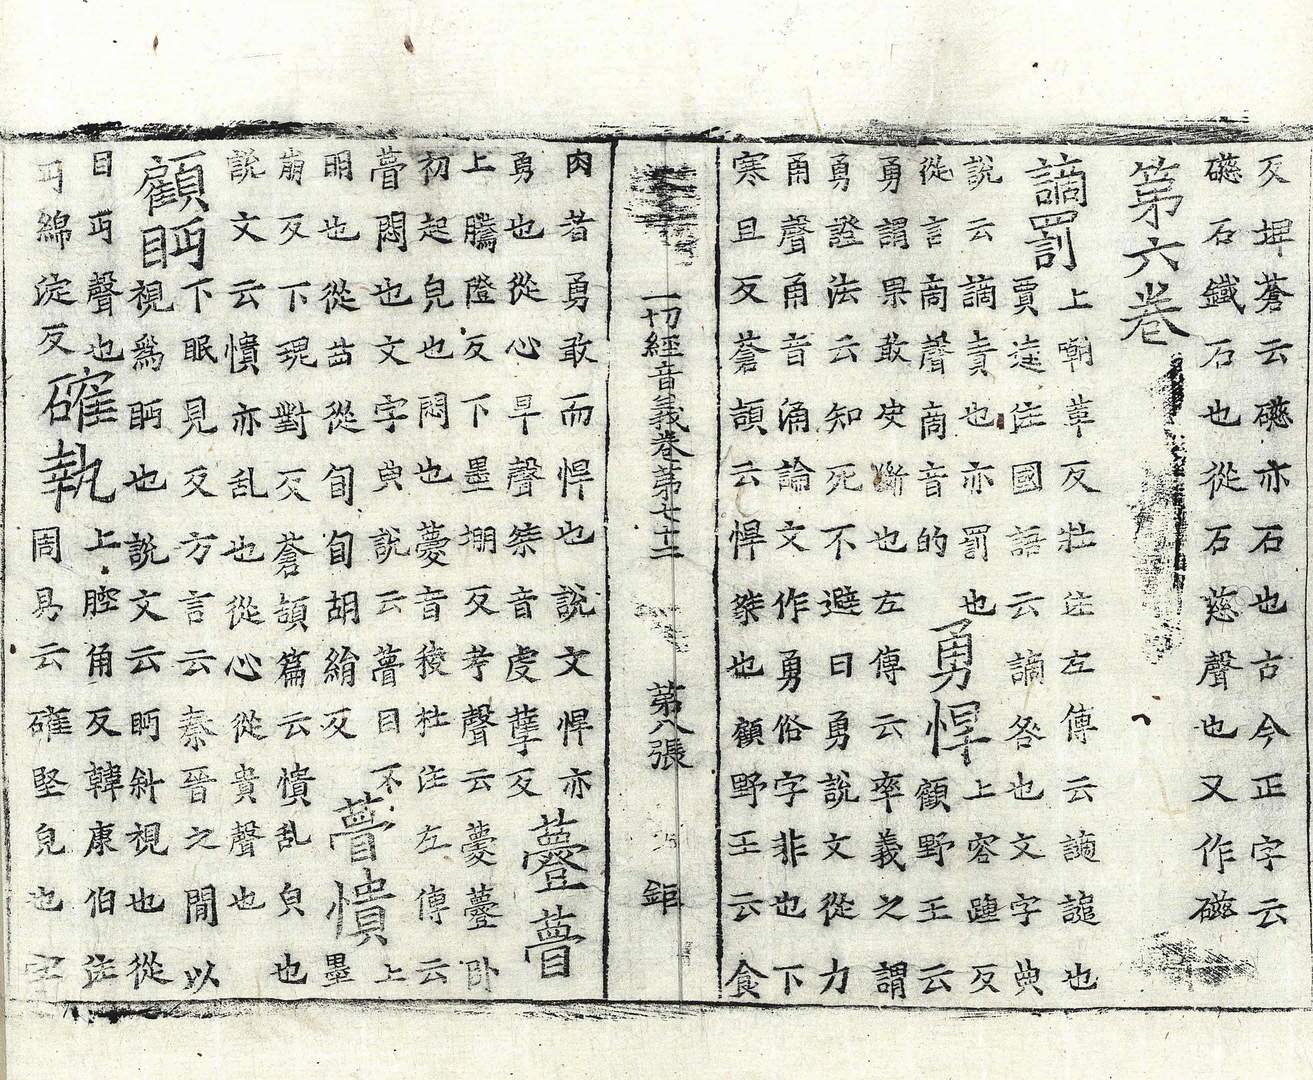 反埤蒼云礠亦石也古今正字云
礠石鐵石也從石慈聲也又作磁
第六卷
謫罰
上嘲革反杜注左傳云謫譴也
賈逵注國語云謫咎也文字典
說云謫責也亦罰也
勇悍
上容踵反
從言啇聲啇音的
顧野王云
勇謂果敢決斷也左傳云率義之謂
勇謚法云知死不避曰勇說文從力
甬聲甬音涌論文作勇俗字非也下
寒旦反蒼頡云悍桀也顧野王云食
一切經音義卷第七十二 第八張 鉅
肉者勇敢而悍也說文悍亦
勇也從心旱聲桀音虔孽反
薹瞢
上騰隥反下墨堋反考聲云薹薹臥
初起皃也悶也薹音稜杜注左傳云
瞢悶也文字典說云瞢目不
瞢憒
上
明也從苜從旬旬胡絹反
墨
崩反下瑰對反蒼頡篇云憒乱皃也
說文云憒亦乱也從心從貴聲也
顧眄
下眠見反方言云秦晉之間以
視為眄也說文云眄斜視也從
目丏聲也
確執
上腔角反韓康伯注
丏綿淀反
周易云確堅皃也字